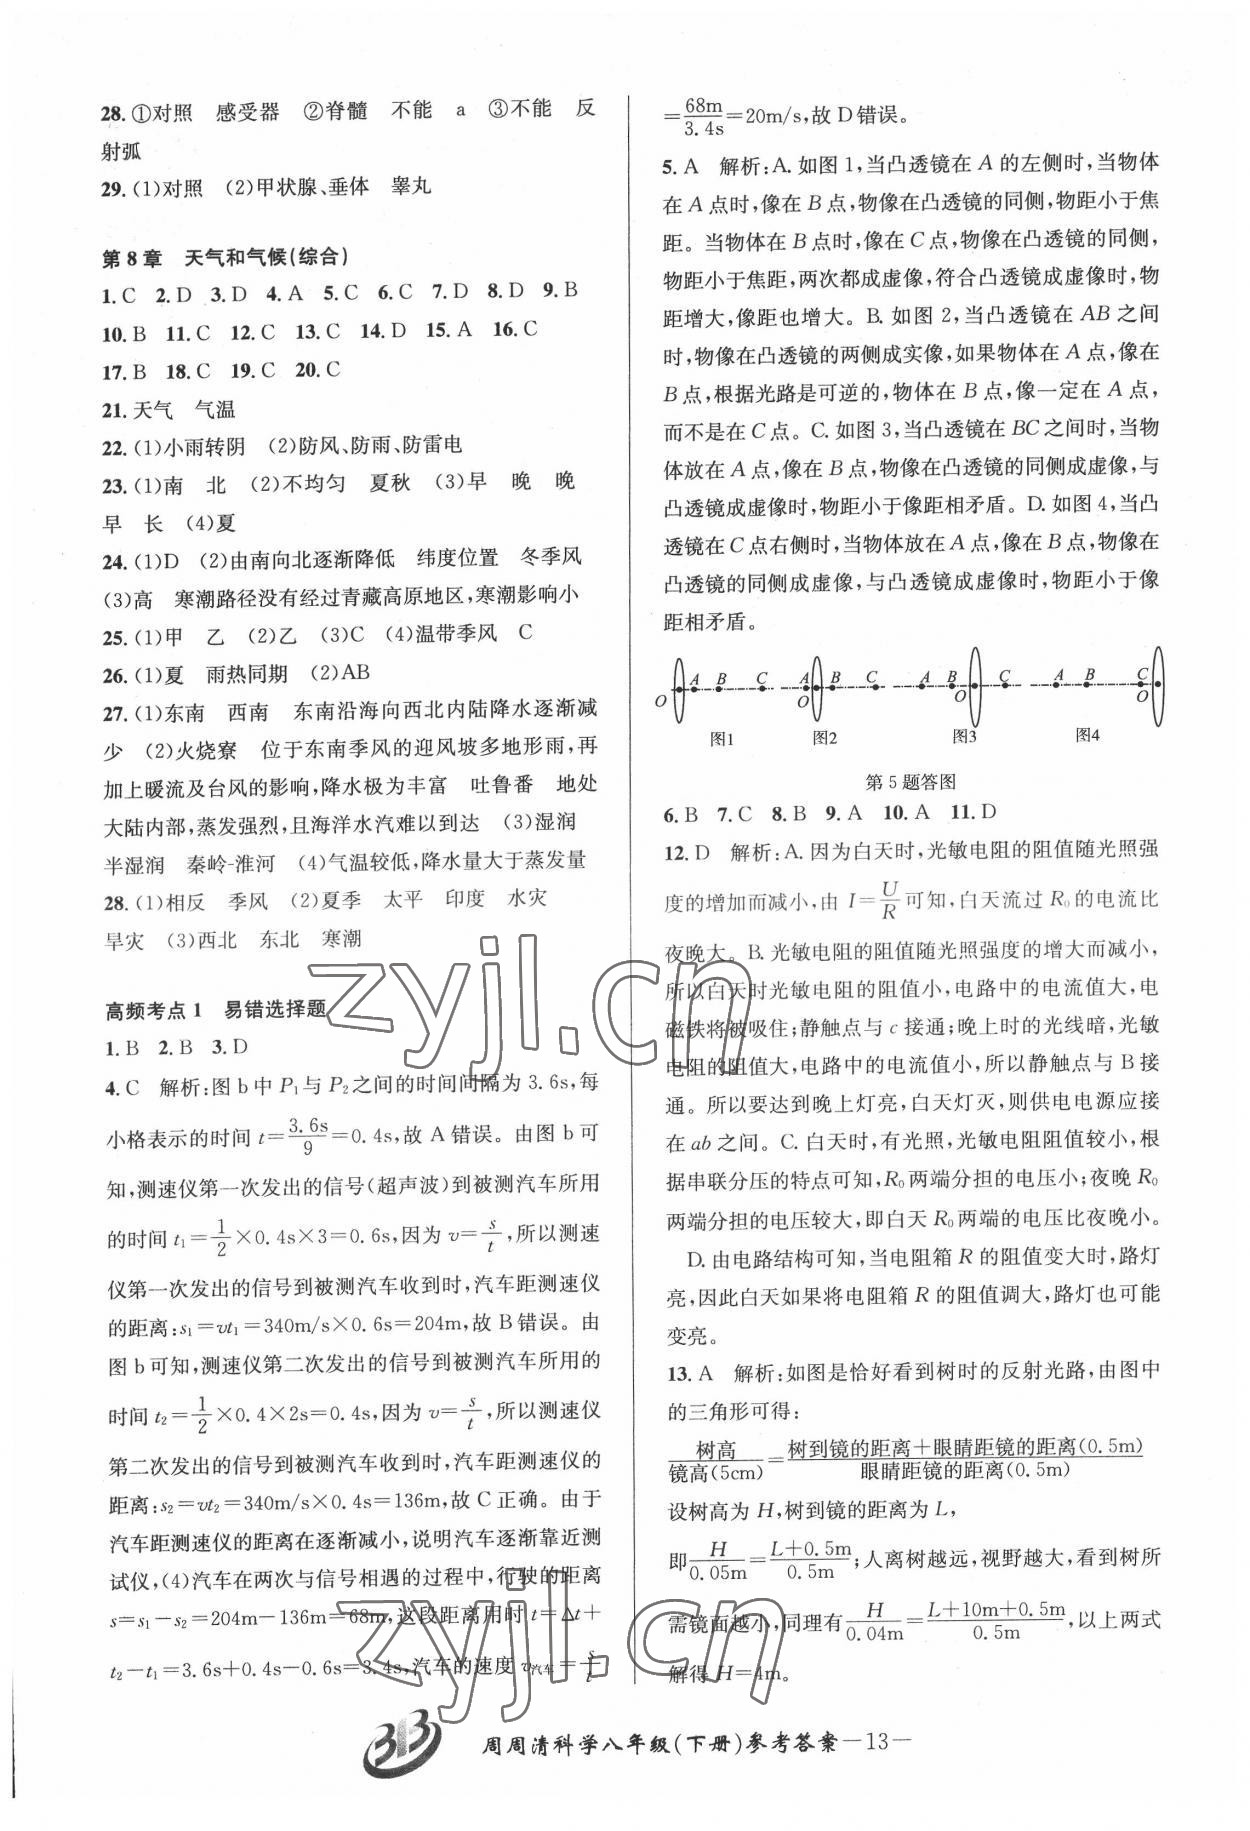 28.①对照　感受器　②脊髓　不能　a　③不能　反
射弧
29.(1)对照　(2)甲状腺、垂体　睾丸
第8章　天气和气候(综合)
1. C　2. D　3. D　4. A　5. C　6. C　7. D　8. D　9. B
10. B　11. C　12. C　13. C　14. D　15. A　16. C
17. B　18. C　19. C　20. C
21.天气　气温
22.(1)小雨转阴　(2)防风、防雨、防雷电
23.(1)南　北　(2)不均匀　夏秋　(3)早　晚　晚
早　长　(4)夏
24.(1)D　(2)由南向北逐渐降低　纬度位置　冬季风
(3)高　寒潮路径没有经过青藏高原地区,寒潮影响小
25.(1)甲　乙　(2)乙　(3)C　(4)温带季风　C
26.(1)夏　雨热同期　(2)AB
27.(1)东南　西南　东南沿海向西北内陆降水逐渐减
少　(2)火烧寮　位于东南季风的迎风坡多地形雨,再
加上暖流及台风的影响,降水极为丰富　吐鲁番　地处
大陆内部,蒸发强烈,且海洋水汽难以到达　(3)湿润
半湿润　秦岭-淮河　(4)气温较低,降水量大于蒸发量
28.(1)相反　季风　(2)夏季　太平　印度　水灾
旱灾　(3)西北　东北　寒潮
高频考点1　易错选择题
1. B　2. B　3. D
4. C　解析:图b中P₁与P₂之间的时间间隔为3.6s,每
小格表示的时间t=3.6s/9=0.4s,故A错误。由图b可
知,测速仪第一次发出的信号(超声波)到被测汽车所用
的时间t₁=1/2×0.4s×3=0.6s,因为v=s/t,所以测速
仪第一次发出的信号到被测汽车收到时,汽车距测速仪
的距离:s₁=vt₁=340m/s×0.6s=204m,故B错误。由
图b可知,测速仪第二次发出的信号到被测汽车所用的
时间t₂=1/2×0.4×2s=0.4s,因为v=s/t,所以测速仪
第二次发出的信号到被测汽车收到时,汽车距测速仪的
距离:s₂=vt₂=340m/s×0.4s=136m,故C正确。由于
汽车距测速仪的距离在逐渐减小,说明汽车逐渐靠近测
试仪,(4)汽车在两次与信号相遇的过程中,行驶的距离
s=s₁-s₂=204m-136m=68m,这段距离用时t=Δt+
t₂-t₁=3.6s+0.4s-0.6s=3.4s,汽车的速度v汽车=s/t
=68m/3.4s=20m/s,故D错误。
5. A　解析:A.如图1,当凸透镜在A的左侧时,当物体
在A点时,像在B点,物像在凸透镜的同侧,物距小于焦
距。当物体在B点时,像在C点,物像在凸透镜的同侧,
物距小于焦距,两次都成虚像,符合凸透镜成虚像时,物
距增大,像距也增大。B.如图2,当凸透镜在AB之间
时,物像在凸透镜的两侧成实像,如果物体在A点,像在
B点,根据光路是可逆的,物体在B点,像一定在A点,
而不是在C点。C.如图3,当凸透镜在BC之间时,当物
体放在A点,像在B点,物像在凸透镜的同侧成虚像,与
凸透镜成虚像时,物距小于像距相矛盾。D.如图4,当凸
透镜在C点右侧时,当物体放在A点,像在B点,物像在
凸透镜的同侧成虚像,与凸透镜成虚像时,物距小于像
距相矛盾。
O A B C　A O B C　A B O C　A B C O
图1　图2　图3　图4
第5题答图
6. B　7. C　8. B　9. A　10. A　11. D
12. D　解析:A.因为白天时,光敏电阻的阻值随光照强
度的增加而减小,由I=U/R可知,白天流过R₀的电流比
夜晚大。B.光敏电阻的阻值随光照强度的增大而减小,
所以白天时光敏电阻的阻值小,电路中的电流值大,电
磁铁将被吸住;静触点与c接通;晚上时的光线暗,光敏
电阻的阻值大,电路中的电流值小,所以静触点与B接
通。所以要达到晚上灯亮,白天灯灭,则供电电源应接
在ab之间。C.白天时,有光照,光敏电阻阻值较小,根
据串联分压的特点可知,R₀两端分担的电压小;夜晚R₀
两端分担的电压较大,即白天R₀两端的电压比夜晚小。
D.由电路结构可知,当电阻箱R的阻值变大时,路灯
亮,因此白天如果将电阻箱R的阻值调大,路灯也可能
变亮。
13. A　解析:如图是恰好看到树时的反射光路,由图中
的三角形可得:
树高/镜高(5cm)=树到镜的距离+眼睛距镜的距离(0.5m)/眼睛距镜的距离(0.5m)
设树高为H,树到镜的距离为L,
即H/0.05m=L+0.5m/0.5m;人离树越远,视野越大,看到树所
需镜面越小,同理有H/0.04m=L+10m+0.5m/0.5m,以上两式
解得H=4m。
zyjl.cn
zyjl.cn
3B
周周清科学八年级(下册)参考答案—13—